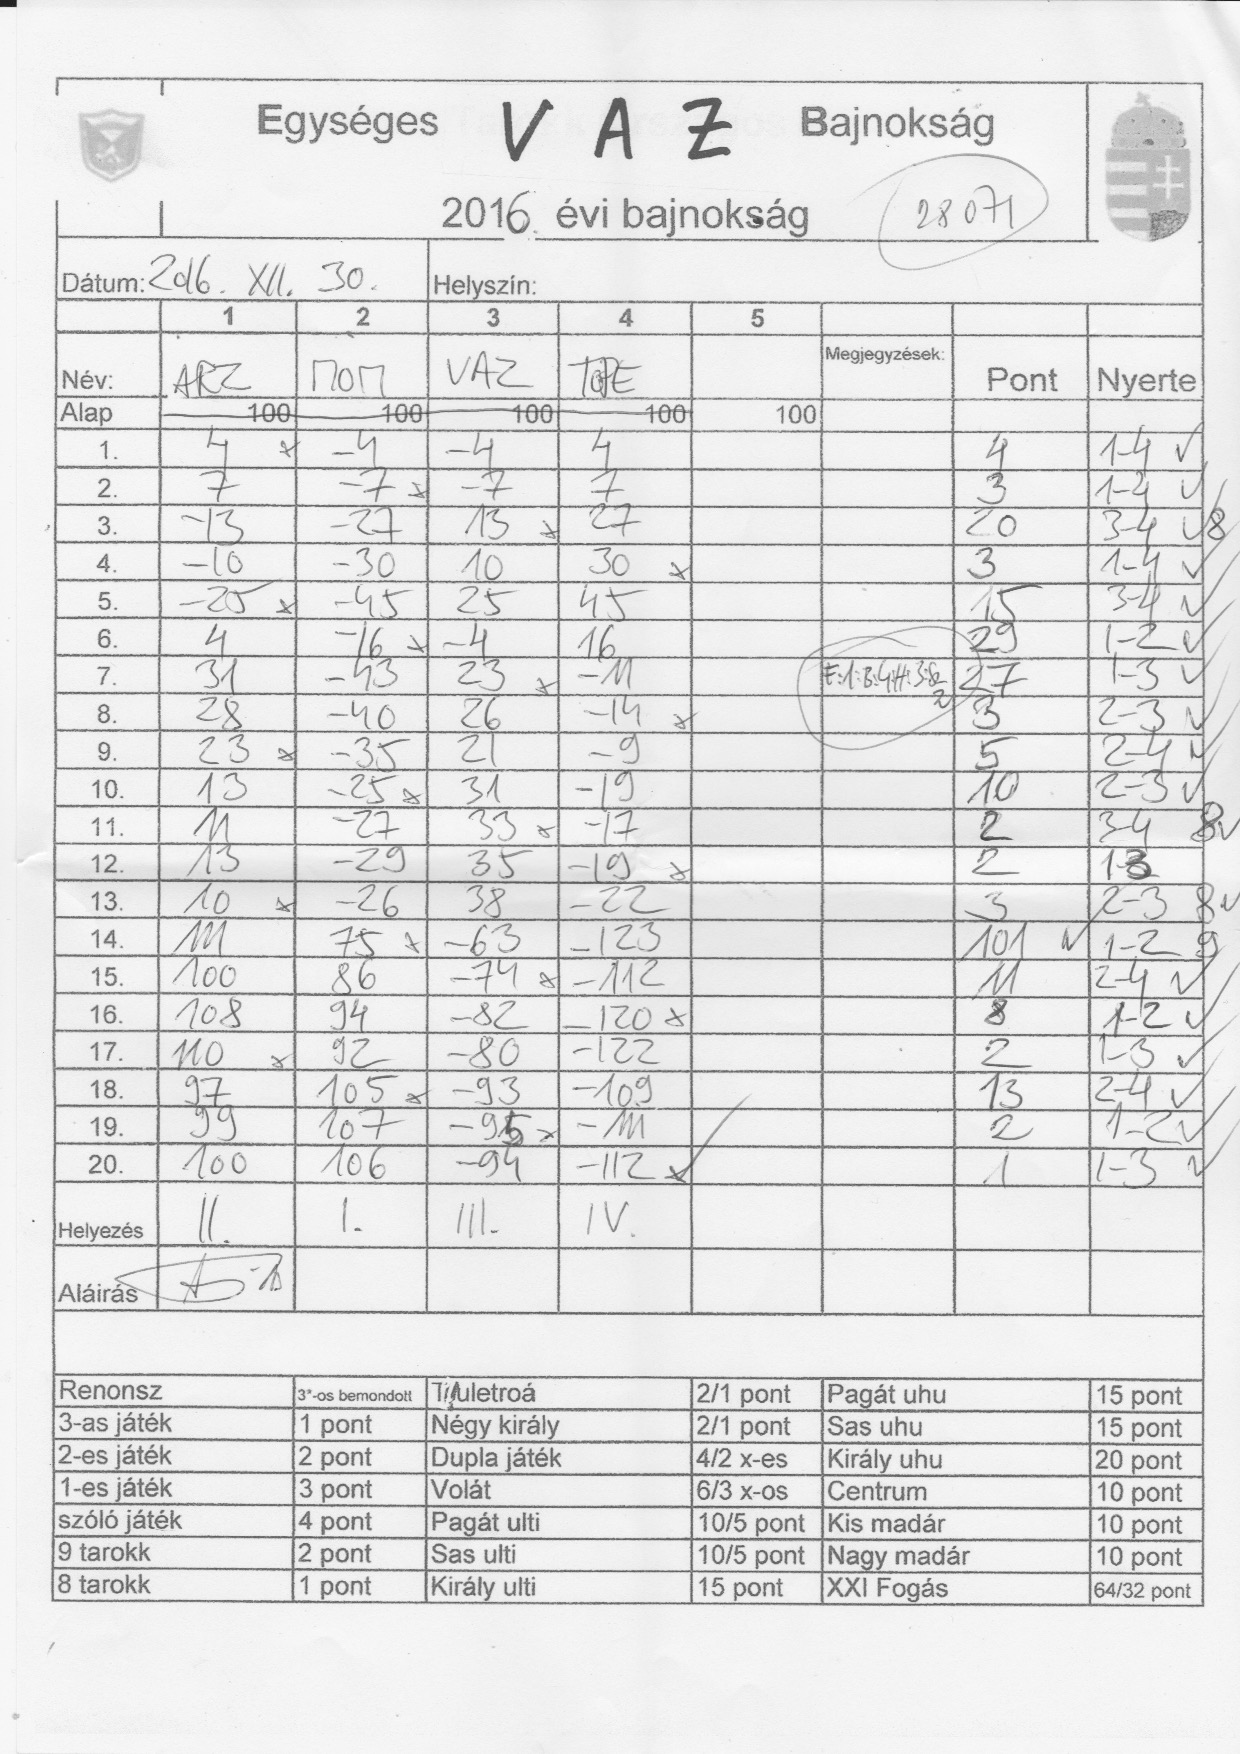 Egységes VAZ Bajnokság
2016. évi bajnokság 28 071
Dátum: 2016. XII. 30. Helyszín:
1 2 3 4 5
Név: ARZ ПОП VAZ TOPE Megjegyzések: Pont Nyerte
Alap 100 100 100 100 100
1. 4 x -4 -4 4 4 1-4 ✓
2. 7 -7 x -7 7 3 1-4 ✓
3. -13 -27 13 x 27 20 3-4 ✓ 8
4. -10 -30 10 30 x 3 1-4 ✓
5. -25 x -45 25 45 15 3-4 ✓
6. 4 -16 x -4 16 29 1-2 ✓
7. 31 -43 23 x -11 27 1-3 ✓
8. 28 -40 26 -14 x 3 2-3 ✓
9. 23 x -35 21 -9 5 2-4 ✓
10. 13 -25 x 31 -19 10 2-3 ✓
11. 11 -27 33 x -17 2 3-4 8 ✓
12. 13 -29 35 -19 x 2 1-3
13. 10 x -26 38 -22 3 2-3 8 ✓
14. 111 75 x -63 -123 101 ✓ 1-2 9
15. 100 86 -74 x -112 11 2-4 ✓
16. 108 94 -82 -120 x 8 1-2 ✓
17. 110 x 92 -80 -122 2 1-3 ✓
18. 97 105 x -93 -109 13 2-4 ✓
19. 99 107 -95 x -111 2 1-2 ✓
20. 100 106 -94 -112 x 1 1-3 ✓
Helyezés II. I. III. IV.
Aláirás
Renonsz 3*-os bemondott Tituletroá 2/1 pont Pagát uhu 15 pont
3-as játék 1 pont Négy király 2/1 pont Sas uhu 15 pont
2-es játék 2 pont Dupla játék 4/2 x-es Király uhu 20 pont
1-es játék 3 pont Volát 6/3 x-os Centrum 10 pont
szóló játék 4 pont Pagát ulti 10/5 pont Kis madár 10 pont
9 tarokk 2 pont Sas ulti 10/5 pont Nagy madár 10 pont
8 tarokk 1 pont Király ulti 15 pont XXI Fogás 64/32 pont